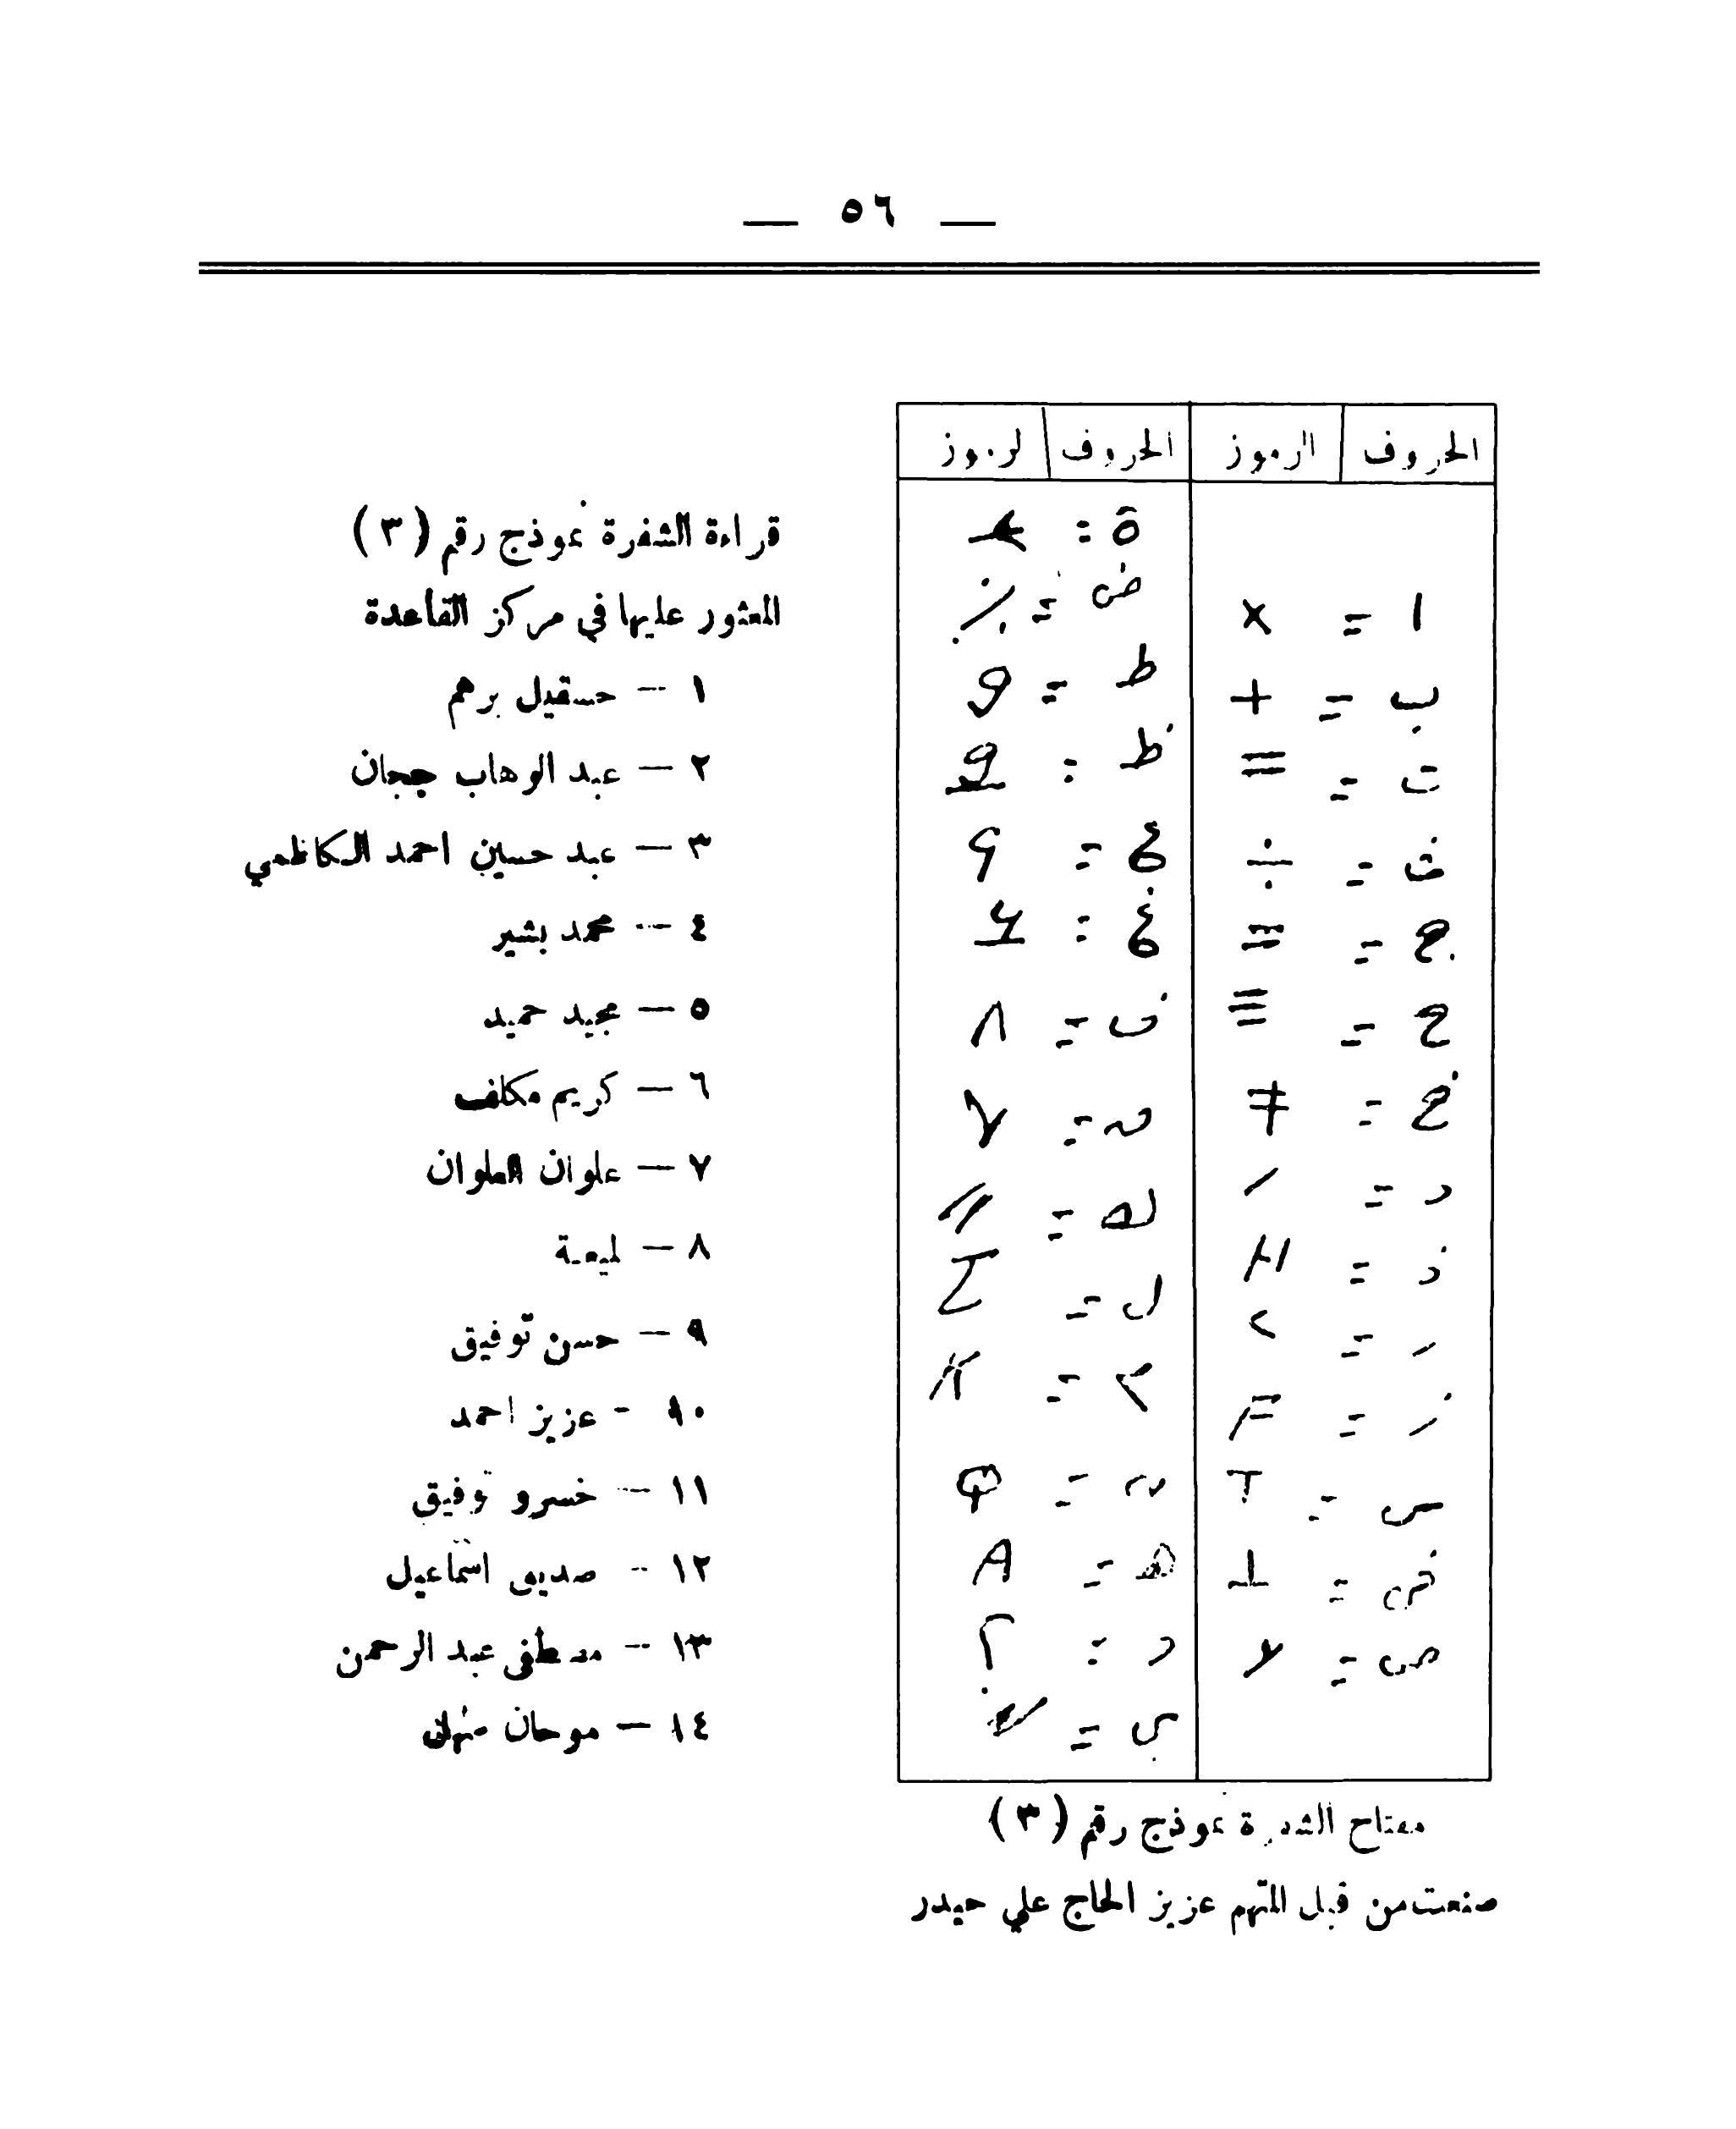 — ٥٦ —
الحروف الرموز الحروف لرموز
ا = x
ب = +
ت = =
ث = ÷
ج =
ح = ≡
خ = ‡
د = /
ذ = H
ر = <
ز = F
س = T
ش = ⊥
ص = y
ة :
ض = ٪
ط = 9
ظ : 9
ع = 9
غ :
ف = ٨
ق = ٧
ك = //
ل = Z
م = K
ن = φ
ه = A
و : ؟
ي =
مفتاح الشفرة نموذج رقم ( ٣ )
صنعت من قبل المتهم عزيز الحاج علي حيدر
قراءة الشفرة نموذج رقم ( ٣ )
المعثور عليها في مركز القاعدة
١ — حسقيل برهم
٢ — عبد الوهاب ججان
٣ — عبد حسين احمد الكاظمي
٤ — محمد بشير
٥ — مجيد حميد
٦ — كريم مكلف
٧ — علوان العلوان
٨ — لميعة
٩ — حسن توفيق
١٠ - عزيز احمد
١١ — خسرو توفيق
١٢ - صديق اسماعيل
١٣ - مصطفى عبد الرحمن
١٤ — موحان